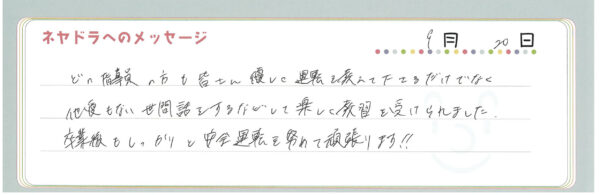 ネヤドラへのメッセージ
9月 20日
どの指導員の方も皆さん優しく運転を教えて下さるだけでなく
他愛もない世間話をするなどして楽しく教習を受けられました.
卒業後もしっかりと安全運転を努めて頑張ります!!